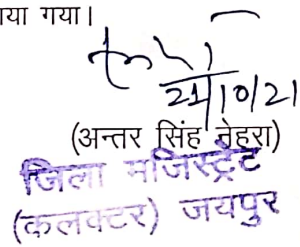 या गया।
21/10/21
(अन्तर सिंह नेहरा)
जिला मजिस्ट्रेट
(कलक्टर) जयपुर